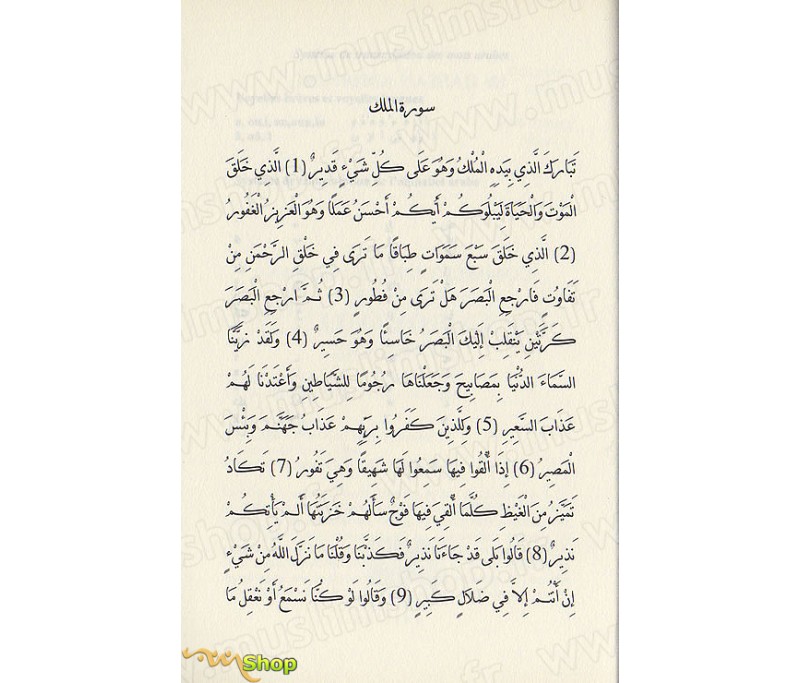 سورة الملك
تَبَارَكَ الَّذِي بِيَدِهِ الْمُلْكُ وَهُوَ عَلَى كُلِّ شَيْءٍ قَدِيرٌ (1) الَّذِي خَلَقَ
الْمَوْتَ وَالْحَيَاةَ لِيَبْلُوَكُمْ أَيُّكُمْ أَحْسَنُ عَمَلًا وَهُوَ الْعَزِيزُ الْغَفُورُ
(2) الَّذِي خَلَقَ سَبْعَ سَمَوَاتٍ طِبَاقًا مَا تَرَى فِي خَلْقِ الرَّحْمَنِ مِنْ
تَفَاوُتٍ فَارْجِعِ الْبَصَرَ هَلْ تَرَى مِنْ فُطُورٍ (3) ثُمَّ ارْجِعِ الْبَصَرَ
كَرَّتَيْنِ يَنْقَلِبْ إِلَيْكَ الْبَصَرُ خَاسِئًا وَهُوَ حَسِيرٌ (4) وَلَقَدْ زَيَّنَّا
السَّمَاءَ الدُّنْيَا بِمَصَابِيحَ وَجَعَلْنَاهَا رُجُومًا للشَّيَاطِينِ وَأَعْتَدْنَا لَهُمْ
عَذَابَ السَّعِيرِ (5) وَلِلَّذِينَ كَفَرُوا بِرَبِّهِمْ عَذَابُ جَهَنَّمَ وَبِئْسَ
الْمَصِيرُ (6) إِذَا أُلْقُوا فِيهَا سَمِعُوا لَهَا شَهِيقًا وَهِيَ تَفُورُ (7) تَكَادُ
تَمَيَّزُ مِنَ الْغَيْظِ كُلَّمَا أُلْقِيَ فِيهَا فَوْجٌ سَأَلَهُمْ خَزَنَتُهَا أَلَمْ يَأْتِكُمْ
نَذِيرٌ (8) قَالُوا بَلَى قَدْ جَاءَنَا نَذِيرٌ فَكَذَّبْنَا وَقُلْنَا مَا نَزَّلَ اللَّهُ مِنْ شَيْءٍ
إِنْ أَنْتُمْ إِلاَّ فِي ضَلَالٍ كَبِيرٍ (9) وَقَالُوا لَوْ كُنَّا نَسْمَعُ أَوْ نَعْقِلُ مَا
Shop
www.muslimshop.fr